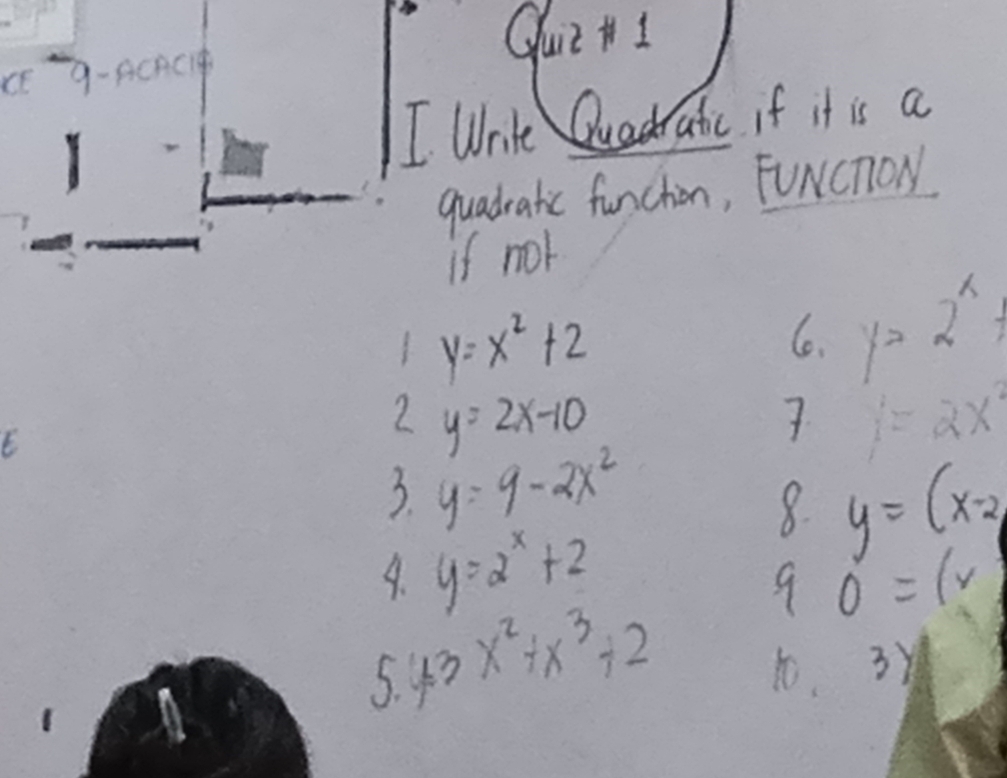 CE 9-ACACIA
Quiz # 1
I. Write Quadratic if it is a
quadratic function, FUNCTION
if not
1 y = x² + 2
2 y = 2x-10
3. y = 9 - 2x²
4. y = 2ˣ + 2
5. y=3 x² + x³ + 2
6. y = 2ˣ +
7 y = 2x²
8. y = (x-2
9 0 = (x
10. 3
E